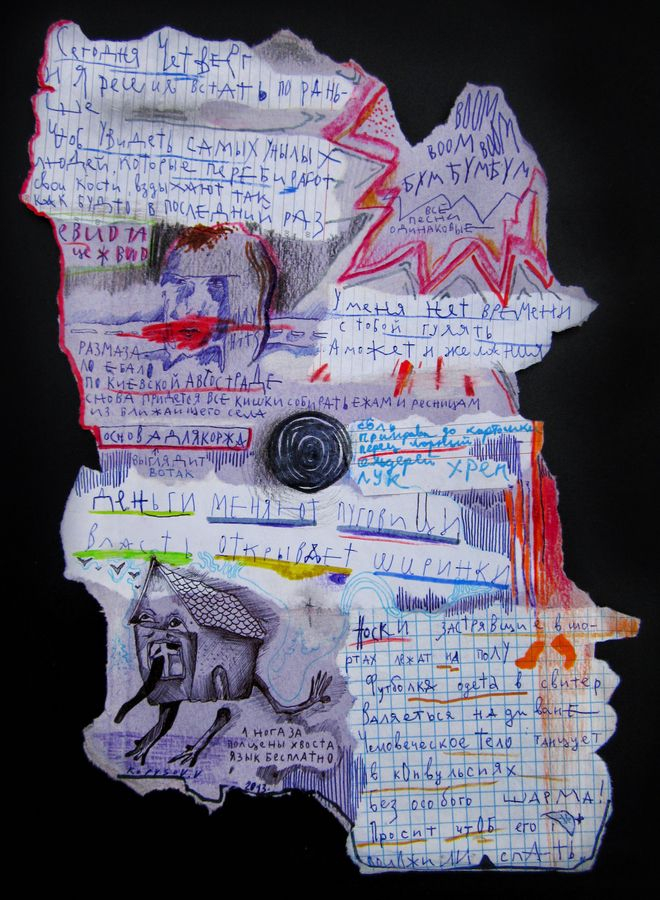 Сегодня четверг
и я решил встать по рань-
ше
чтоб увидеть самых унылых
людей, которые перебирают
свои кости, вздыхают так
как будто в последний раз
BOOM
BOOM
BOOM BOOM
БУМ БУМ БУМ
все
песни
одинаковые
У меня нет времени
с тобой гулять
А может и желания
размаза-
ло ебало
по киевской автостраде
снова придется все кишки собирать ежам и ресницам
из ближайшего села
основа для коржа
выглядит
вот так
соль
приправа до карточки
перец чорный
сельдерей
лук хрен
Деньги меняют пуговицы
власть открывает ширинки
Носки застрявшие в шо-
ртах лежат на полу
Футболка одета в свитер
валяеться на диване
Человеческое тело танцует
в конвульсиях
без особого шарма!
Просит чтоб его
положили спать
1 нога за
пол цены хвоста
язык бесплатно
2013